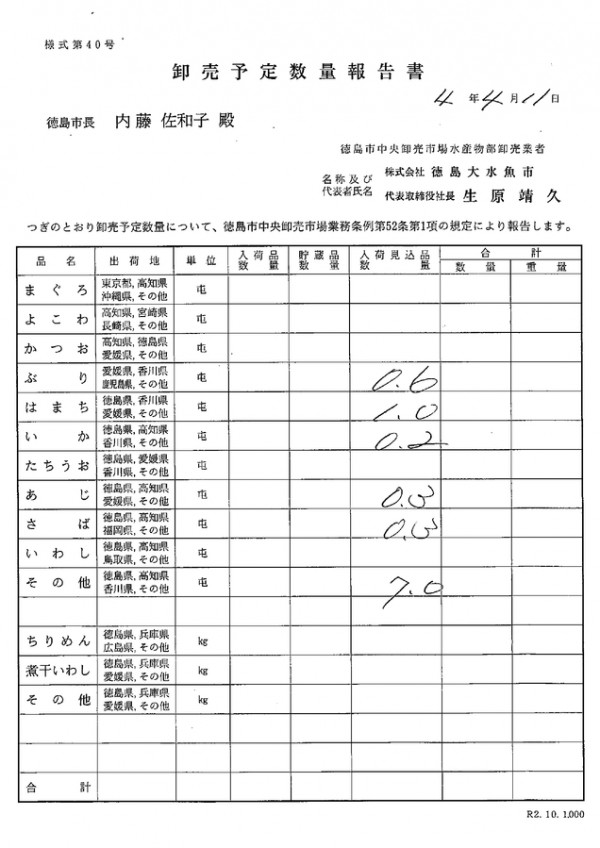 様式第40号
卸売予定数量報告書
4年4月11日
徳島市長 内藤 佐和子 殿
徳島市中央卸売市場水産物部卸売業者
名称及び 株式会社 徳島大水魚市
代表者氏名 代表取締役社長 生原靖久
つぎのとおり卸売予定数量について、徳島市中央卸売市場業務条例第52条第1項の規定により報告します。
品名 出荷地 単位 入荷品数量 貯蔵品数量 入荷見込品数量 合計 数量 重量
まぐろ 東京都, 高知県 沖縄県, その他 屯
よこわ 高知県, 宮崎県 長崎県, その他 屯
かつお 高知県, 徳島県 愛媛県, その他 屯
ぶり 愛媛県, 香川県 鹿児島県, その他 屯 0.6
はまち 徳島県, 香川県 愛媛県, その他 屯 1.0
いか 徳島県, 高知県 香川県, その他 屯 0.2
たちうお 徳島県, 愛媛県 香川県, その他 屯
あじ 徳島県, 高知県 愛媛県, その他 屯 0.3
さば 徳島県, 高知県 福岡県, その他 屯 0.3
いわし 徳島県, 高知県 鳥取県, その他 屯
その他 徳島県, 高知県 香川県, その他 屯 7.0
ちりめん 徳島県, 兵庫県 広島県, その他 kg
煮干いわし 徳島県, 兵庫県 愛媛県, その他 kg
その他 徳島県, 兵庫県 愛媛県, その他 kg
合計
R2. 10. 1,000